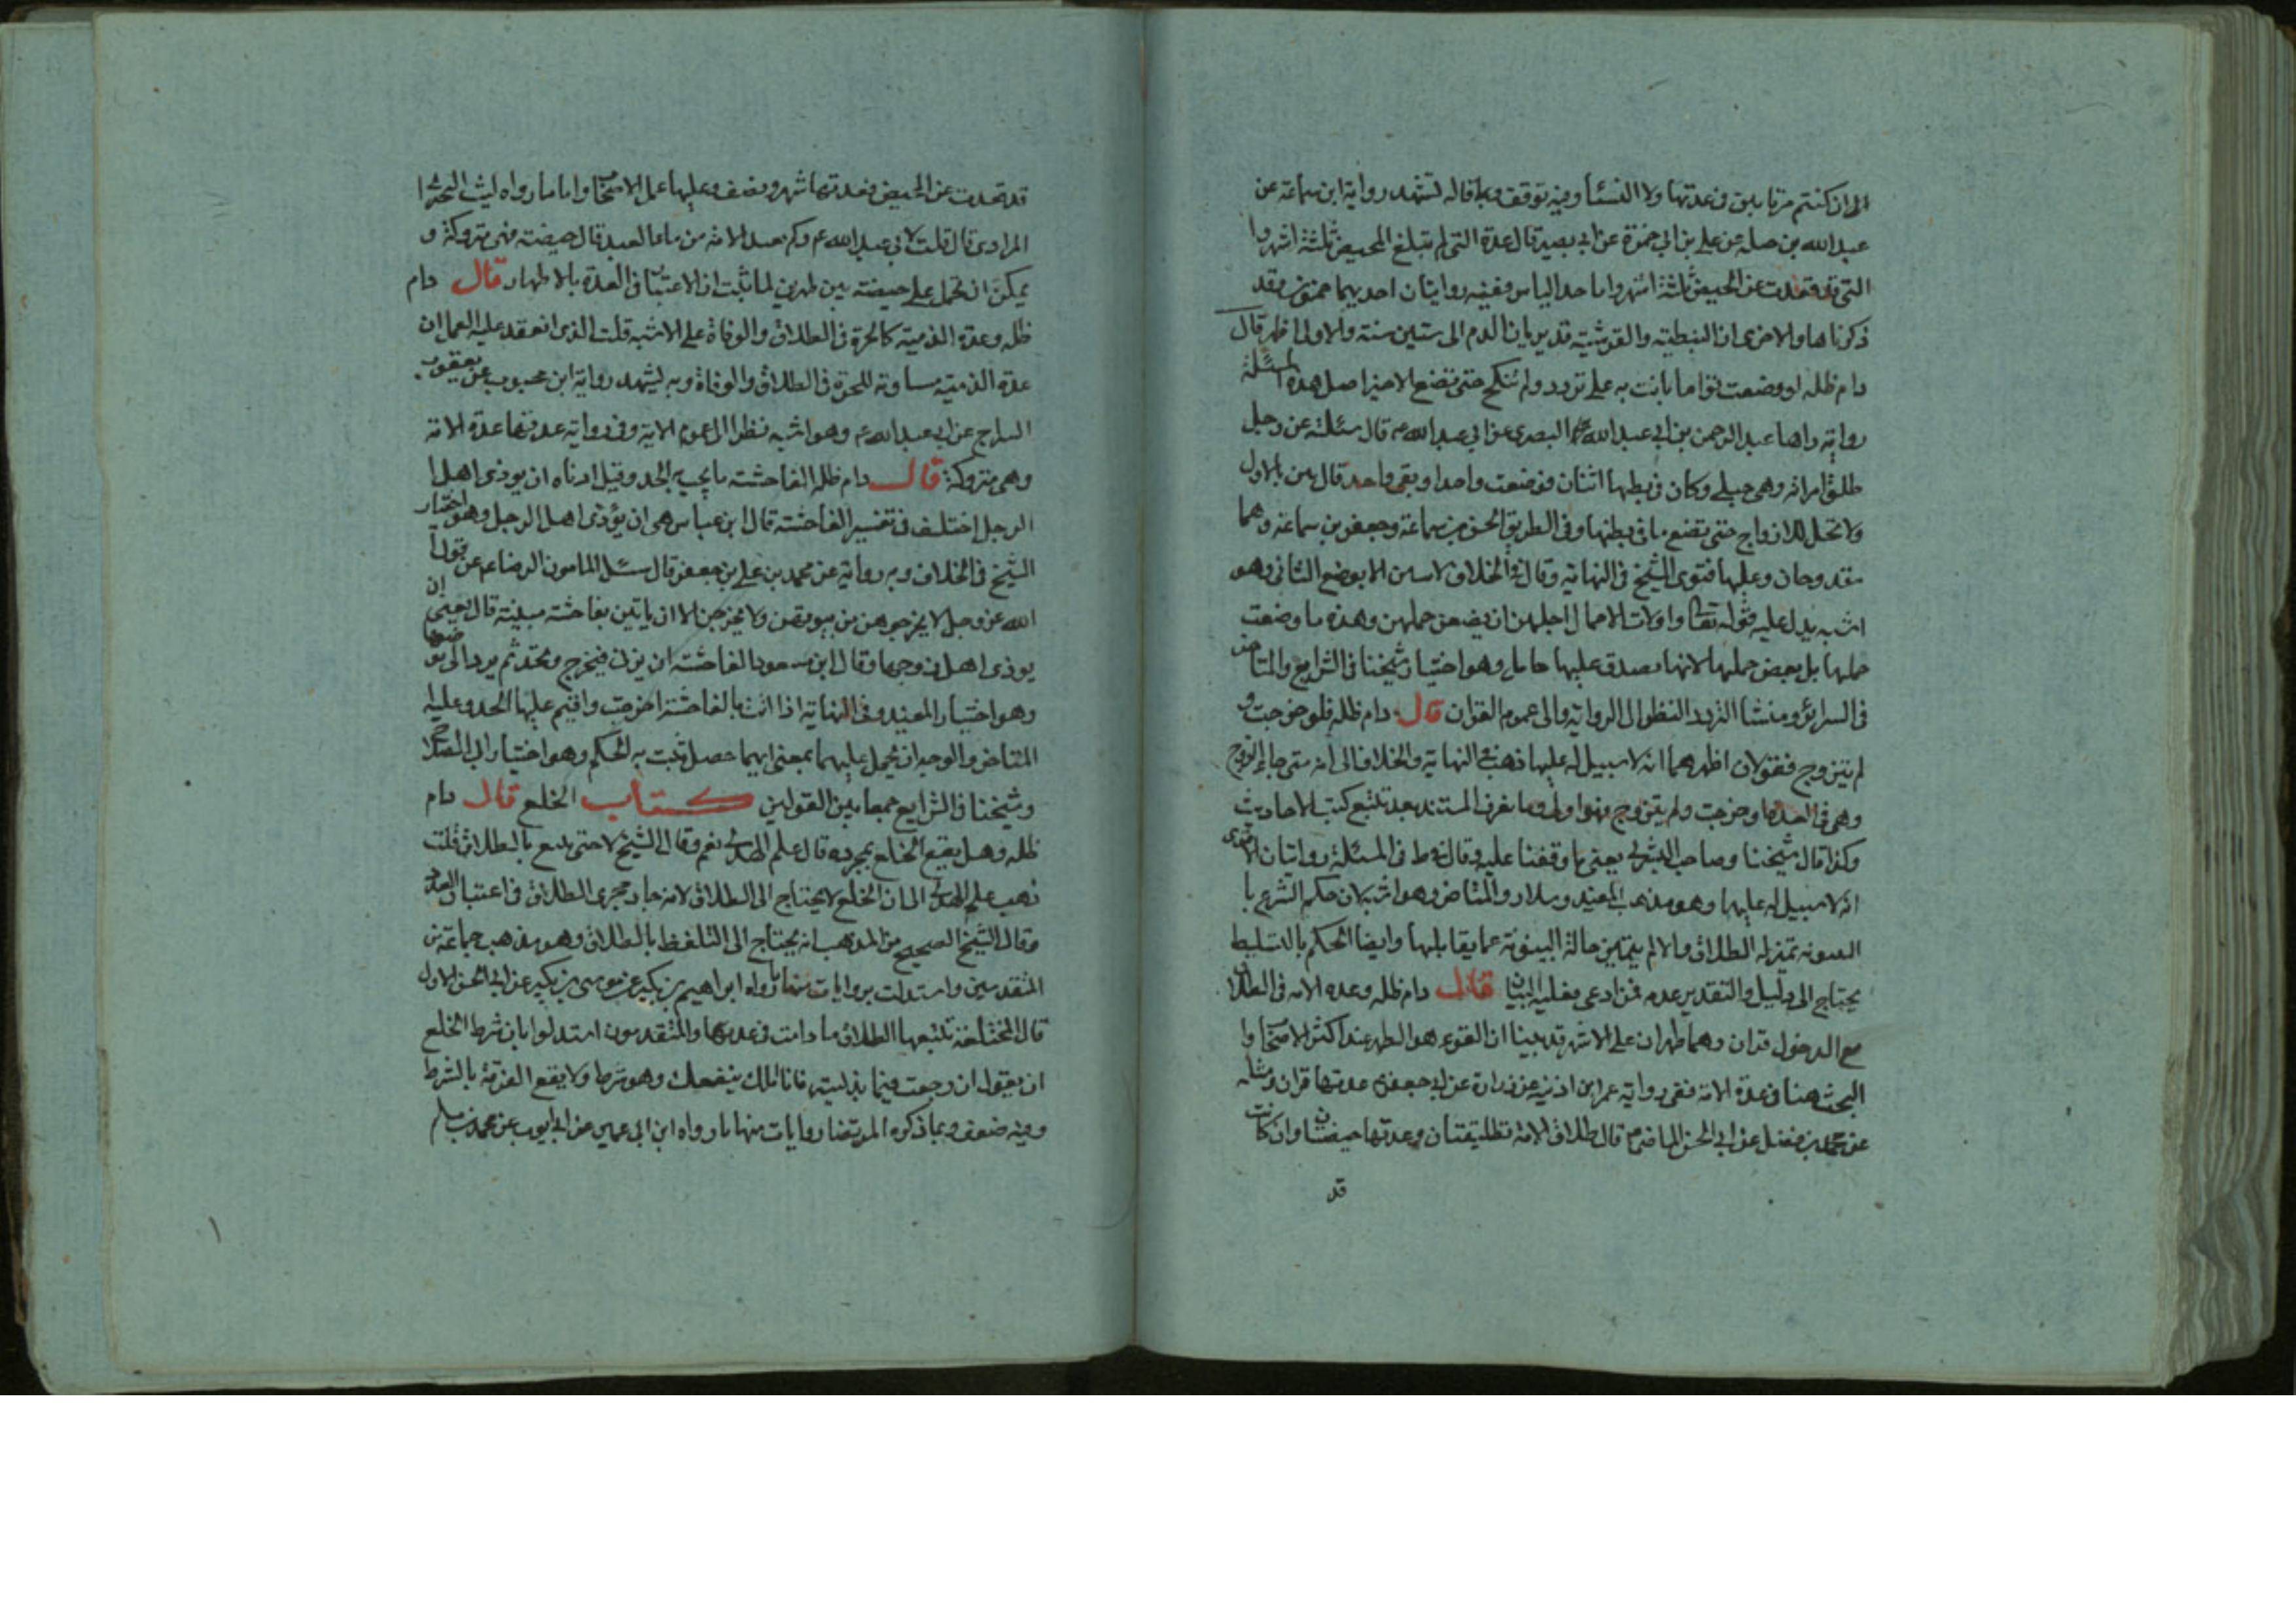 الى ان كنتم مرتابين فى عدتها ولا النساء وفيه توقف وبما قاله تشهد رواية ابن سماعة عن
عبد الله بن جبله عن على بن ابى حمزة عن ابى بصير قال عدة التى لم تبلغ المحيض ثلثة اشهر وا
التى قد قعدت عن الحيض ثلثة اشهر واما حد الياس ففيه روايتان احديهما خمسون وقد
ذكرناها والاخرى ان النبطية والقرشية قد يريان الدم الى ستين سنة والاولى اظهر قال
دام ظله او وضعت توا ما بانت به على تردد ولم تنكح حتى تضع الاخر اصل هذه المسئلة
رواية رواها عبد الرحمن بن ابى عبد الله البصرى عن ابى عبد الله ع قال سئلته عن رجل
طلق امراته وهى حبلى وكان فى بطنها اثنان فوضعت واحدا وبقى واحد قال تبين بالاول
ولا تحل للازواج حتى تضع ما فى بطنها وفى الطريق الحسن بن سماعة وجعفر بن سماعة وهما
مقدوحان وعليها فتوى الشيخ فى النهاية وقال فى الخلاف لا تبين الا بوضع الثانى وهو
اشبه يدل عليه قوله تعالى واولات الاحمال اجلهن ان يضعن حملهن وهذه ما وضعت
حملها بل بعض حملها لانها يصدق عليها حامل وهو اختيار شيخنا فى الشرايع والمتاخر
فى السرائر ومنشا التردد النظر الى الرواية والى عموم القران قال دام ظله فلو خرجت و
لم يتزوج فقولان اظهرهما انه لا سبيل له عليها ذهب فى النهاية والخلاف الى انه متى جاء الزوج
وهى فى العدة او خرجت ولم يتزوج فهو اولى وما نعرف المستند بعد تتبع كتب الاحاديث
وكذا قال شيخنا وصاحب البشرى يعنى ما وقفنا عليه وقال فى ط فى المسئلة روايتان الاخرى
انه لا سبيل له عليها وهو مذهب المفيد وسلار والمتاخر وهو اشبه لان حكم الشرع با
لبينونة بمنزلة الطلاق والا لم يتميز حالة البينونة عما يقابلها وايضا الحكم بالتسليط
يحتاج الى دليل والتقدير عدمه فمن ادعى فعليه البيان قال دام ظله وعدة الامة فى الطلاق
مع الدخول قران وهما طهران على الاشهر قد بينا ان القرء هو الطهر عند اكثر الاصحاب وا
البحث هنا فى عدة الامة ففى رواية عمر ابن اذينة عن زرارة عن ابى جعفر ع عدتها قران ومثله
عن محمد بن فضيل عن ابى الحسن الماضى ع قال طلاق الامة تطليقتان وعدتها حيضتان وان كانت
قد
قد قعدت عن الحيض فعدتها شهر ونصف وعليها عمل الاصحاب واما ما رواه ليث البحترا
المرادى قال قلت لابى عبد الله ع وكم تعتد الامة من ماء العبد قال حيضة فهى متروكة و
يمكن ان تحمل على حيضة بين طهرين لما ثبت ان الاعتبار فى العدة بالاطهار قال دام
ظله وعدة الذمية كالحرة فى الطلاق والوفاة على الاشبه قلت الذى انعقد عليه العمل ان
عدة الذمية مساوية للحرة فى الطلاق والوفاة وبه يشهد رواية ابن محبوب عن يعقوب
السراج عن ابى عبد الله ع وهو اشبه نظرا الى عموم الاية وفى رواية عدتها عدة الامة
وهى متروكة قال دام ظله الفاحشة ما يجب به الحد وقيل ادناه ان يوذى اهل ا
الرجل اختلف فى تفسير الفاحشة قال ابن عباس هى ان يؤذى اهل الرجل وهو اختيار
الشيخ فى الخلاف وبه رواية عن محمد بن على بن جعفر قال سئل المامون الرضا ع عن قول ا
الله عز وجل لا يخرجوهن من بيوتهن ولا يخرجن الا ان ياتين بفاحشة مبينة قال يعنى ان
يوذى اهل زوجها وقال ابن مسعود الفاحشة ان يزنى فيخرج وتحد ثم يرد الى موضعها
وهو اختيار المفيد وفى النهاية اذا اتت بالفاحشة اخرجت واقيم عليها الحد وعليه
المتاخر والوجه ان يحمل عليهما بمعنى ايهما حصل يثبت به الحكم وهو اختيار ابى الصلاح
وشيخنا فى الشرايع جمعا بين القولين كتاب الخلع قال دام
ظله وهل يقع الخلع بمجرده قال علم الهدى نعم وقال الشيخ لا حتى يتبع بالطلاق قلت
ذهب علم الهدى الى ان الخلع لا يحتاج الى الطلاق لانه جار مجرى الطلاق فى اعتبار العدد
وقال الشيخ الصحيح من المذهب انه يحتاج الى التلفظ بالطلاق وهو مذهب جماعة من
المتقدمين واستدلت بروايات منها ما رواه ابراهيم بن بكير عن موسى بن بكير عن ابى الحسن الاول
قال المختلعة تتبعها الطلاق ما دامت فى عدتها والمتقدمون استدلوا بان شرط الخلع
ان يقول ان رجعت فيما بذلت فانا املك ببضعك وهو شرط ولا يقع الفرقة بالشرط
وفيه ضعف وبما ذكره المرتضى روايات منها ما رواه ابن ابى عمير عن ابى ايوب عن محمد بن مسلم